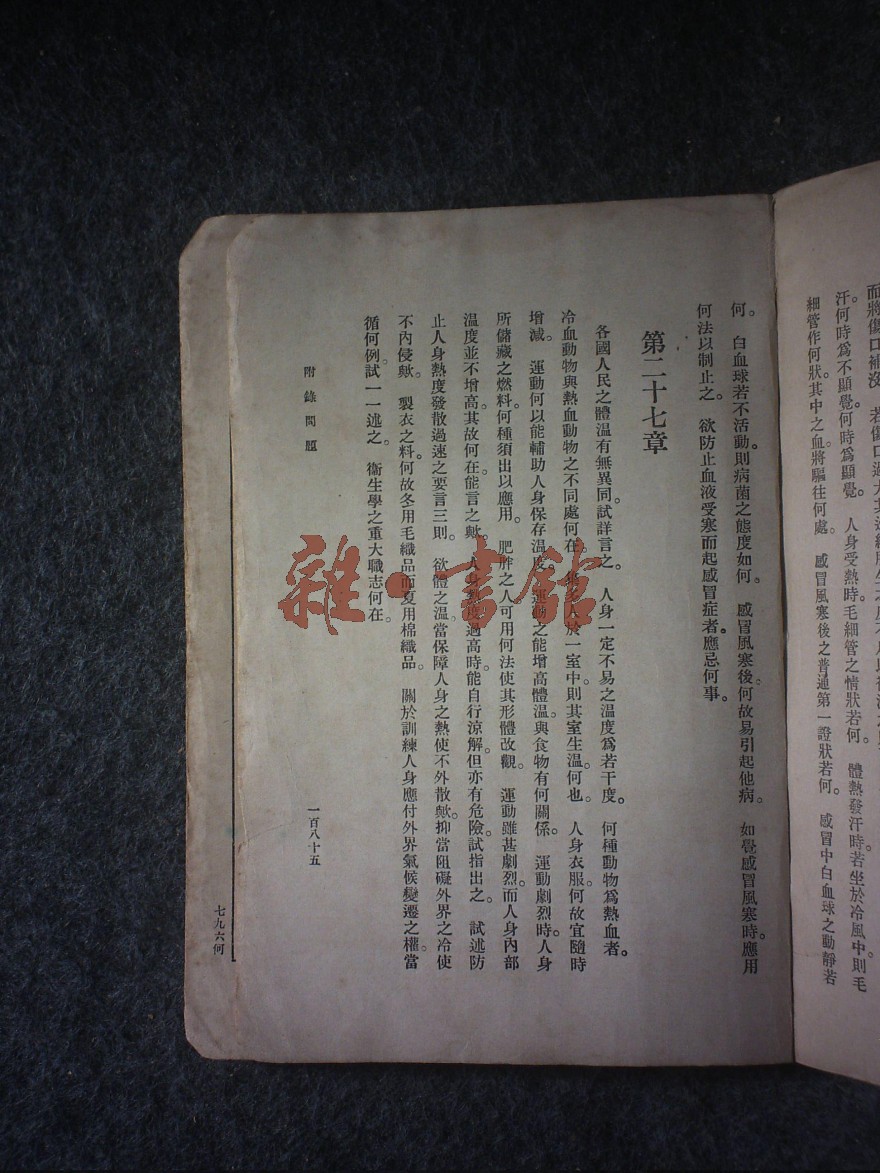 細管作何狀。其中之血將驅往何處。　感冒風寒後之普通第一證狀若何。　感冒中白血球之動靜若
汗。何時爲不顯覺。何時爲顯覺。　人身受熱時。毛細管之情狀若何。　體熱發汗時。若坐於冷風中則毛
何。　白血球若不活動。則病菌之態度如何。　感冒風寒後。何故易引起他病。　如覺感冒風寒時。應用
何法以制止之。　欲防止血液受寒而起感冒症者。應忌何事。
第二十七章
各國人民之體溫有無異同。試詳言之。　人身一定不易之溫度爲若干度。　何種動物爲熱血者。
冷血動物與熱血動物之不同處何在。　於一室中。則其室生溫何也。　人身衣服。何故宜隨時
增減。　運動何以能輔助人身保存溫度。　運動之能增高體溫。與食物有何關係。　運動劇烈時。人身
所儲藏之燃料。何種須出以應用。　肥胖之人。可用何法使其形體改觀。　運動雖甚劇烈。而人身內部
溫度並不增高。其故何在。能言之歟。　人身熱度過高時。能自行涼解。但亦有危險。試指出之。　試述防
止人身熱度發散過速之要言三則。　欲體之溫。當保障人身之熱。使不外散歟。抑當阻礙外界之冷。使
不內侵歟。　製衣之料。何故冬用毛織品而夏用棉織品。　關於訓練人身應付外界氣候變遷之權。當
循何例。試一一述之。　衞生學之重大職志何在。
附錄問題
一百八十五
七九六何
雜·書館